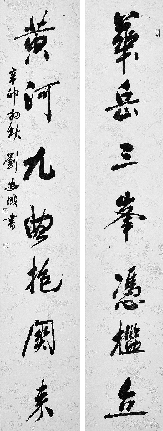 華岳三峯憑檻立
黄河九曲抱關来
辛卯初秋